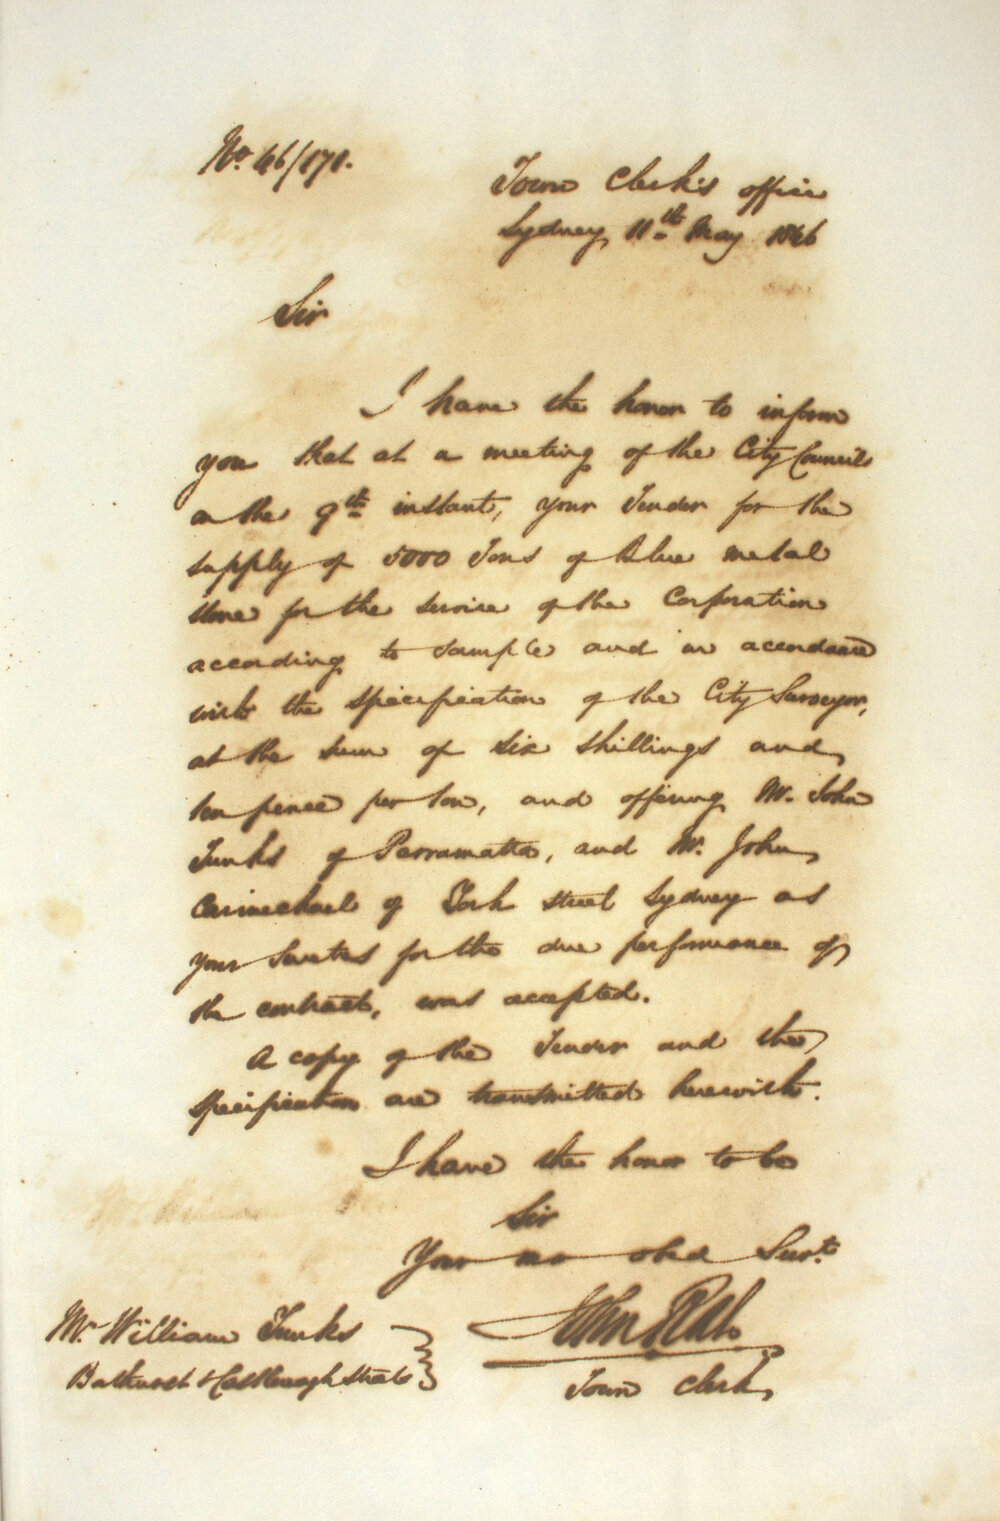 No. 46/171.
Town Clerk's office
Sydney, 11th May 1846
Sir
I have the honor to inform
you that at a meeting of the City Council
on the 9th instant, your Tender for the
supply of 5000 Tons of Blue metal
stone for the service of the Corporation
according to sample and in accordance
with the specification of the City Surveyor,
at the sum of six shillings and
ten pence per ton, and offering Mr. John
Tunks of Parramatta, and Mr. John
Carmichael of York Street Sydney as
your Sureties for the due performance of
the contract, was accepted.
A copy of the Tender and the
specification are transmitted herewith.
I have the honor to be
Sir
Your mo obed Servt.
John Rae
Town Clerk
Mr William Tunks
Bathurst & Castlereagh Streets